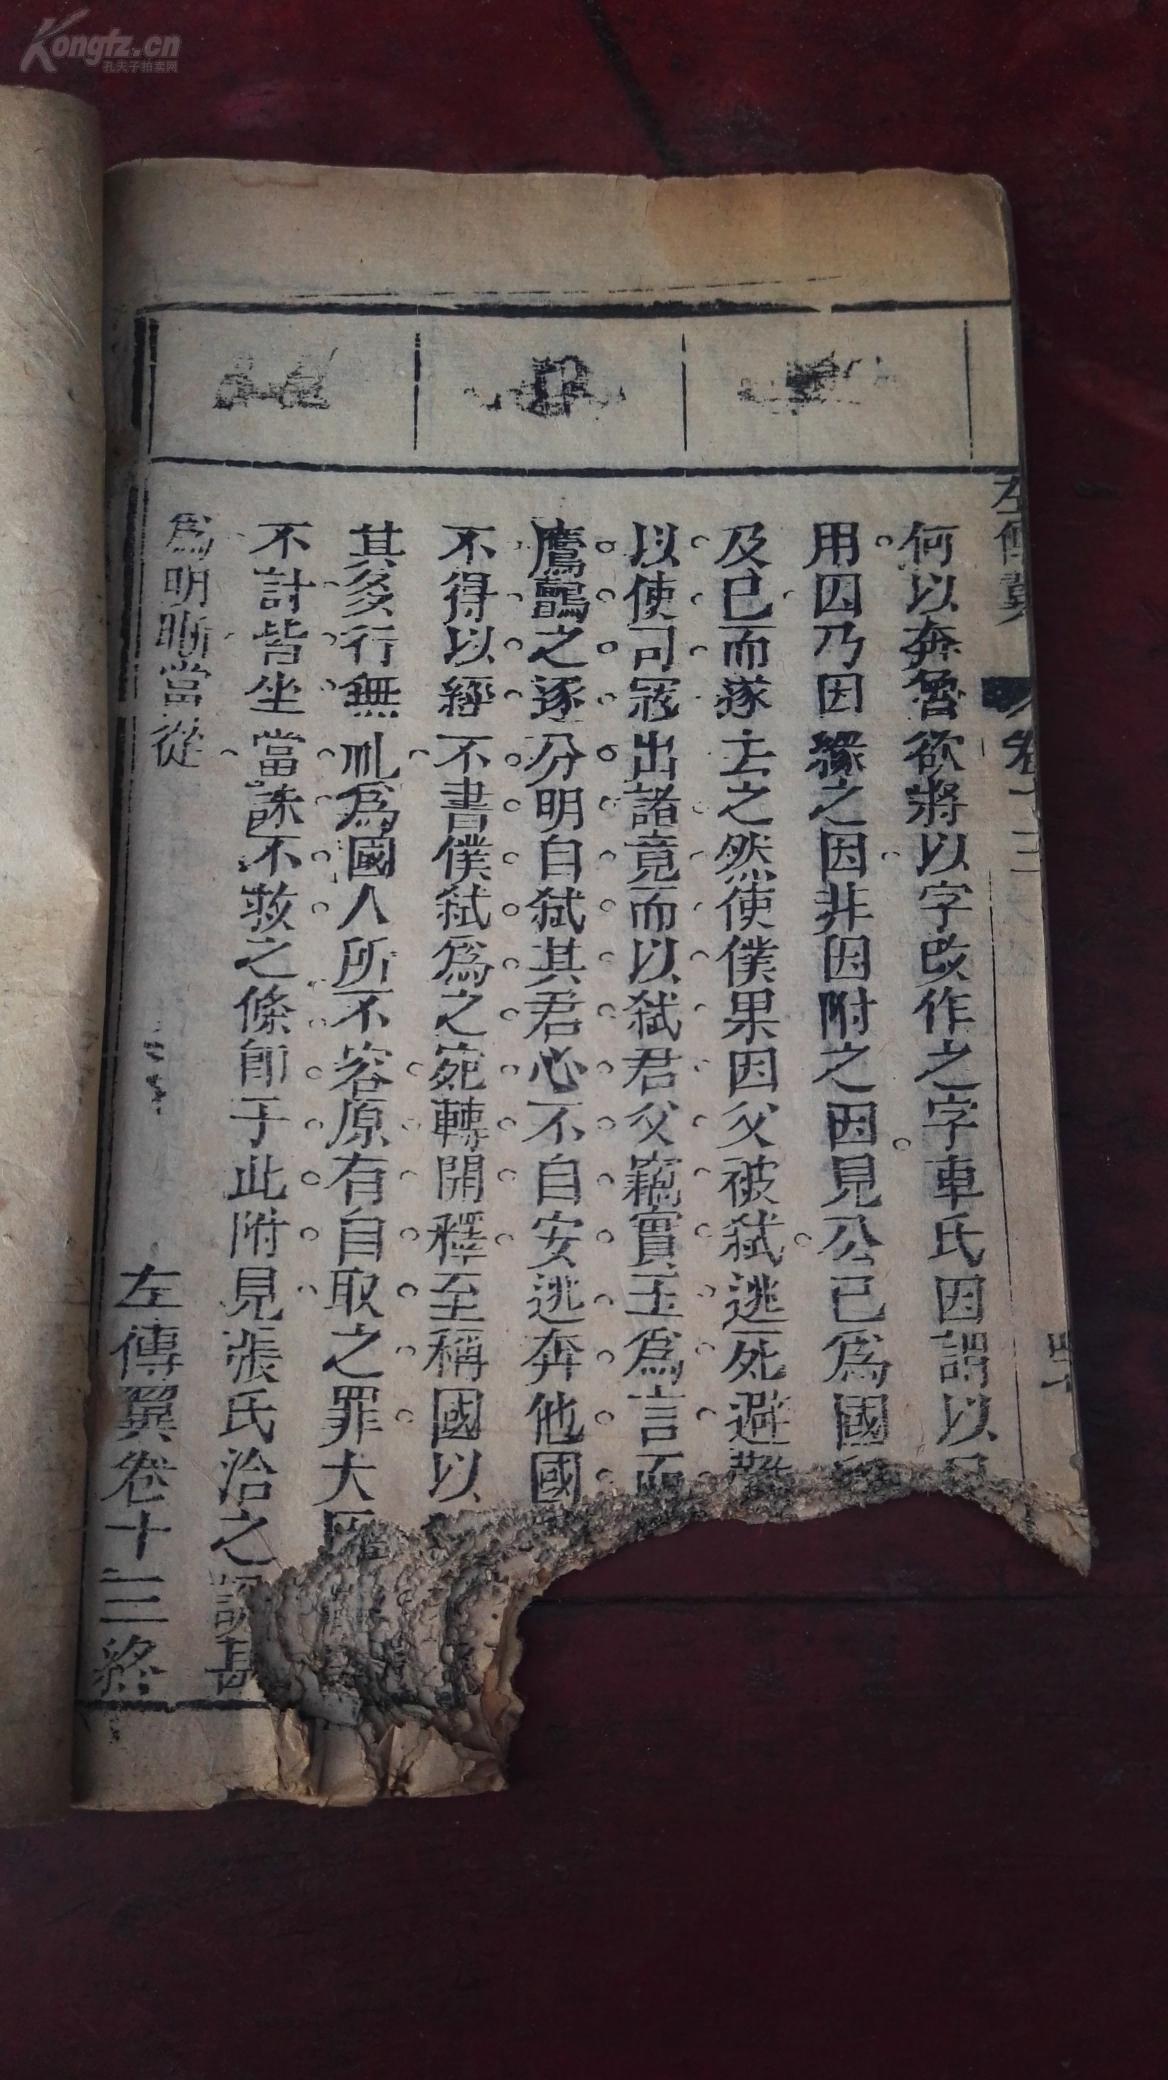 Kongfz.cn
孔夫子拍卖网
左傳翼
卷十三
何以奔魯欲將以字改作之字車氏因謂以
用因乃因緣之因非因附之因見公已爲國
及已而遂去之然使僕果因父被弑逃死避難
以使司寇出諸竟而以弑君父竊寶玉爲言而
鷹鸇之逐分明自弑其君心不自安逃奔他國
不得以經不書僕弑爲之宛轉開釋至稱國以
其多行無禮爲國人所不容原有自取之罪大
不討皆坐當誅不赦之條即于此附見張氏洽之説甚
爲明晰當從
左傳翼卷十三終